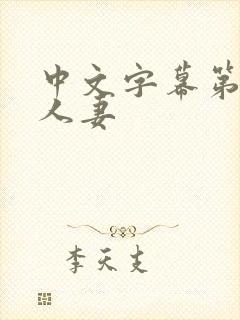 中文字幕第
人妻
李天支